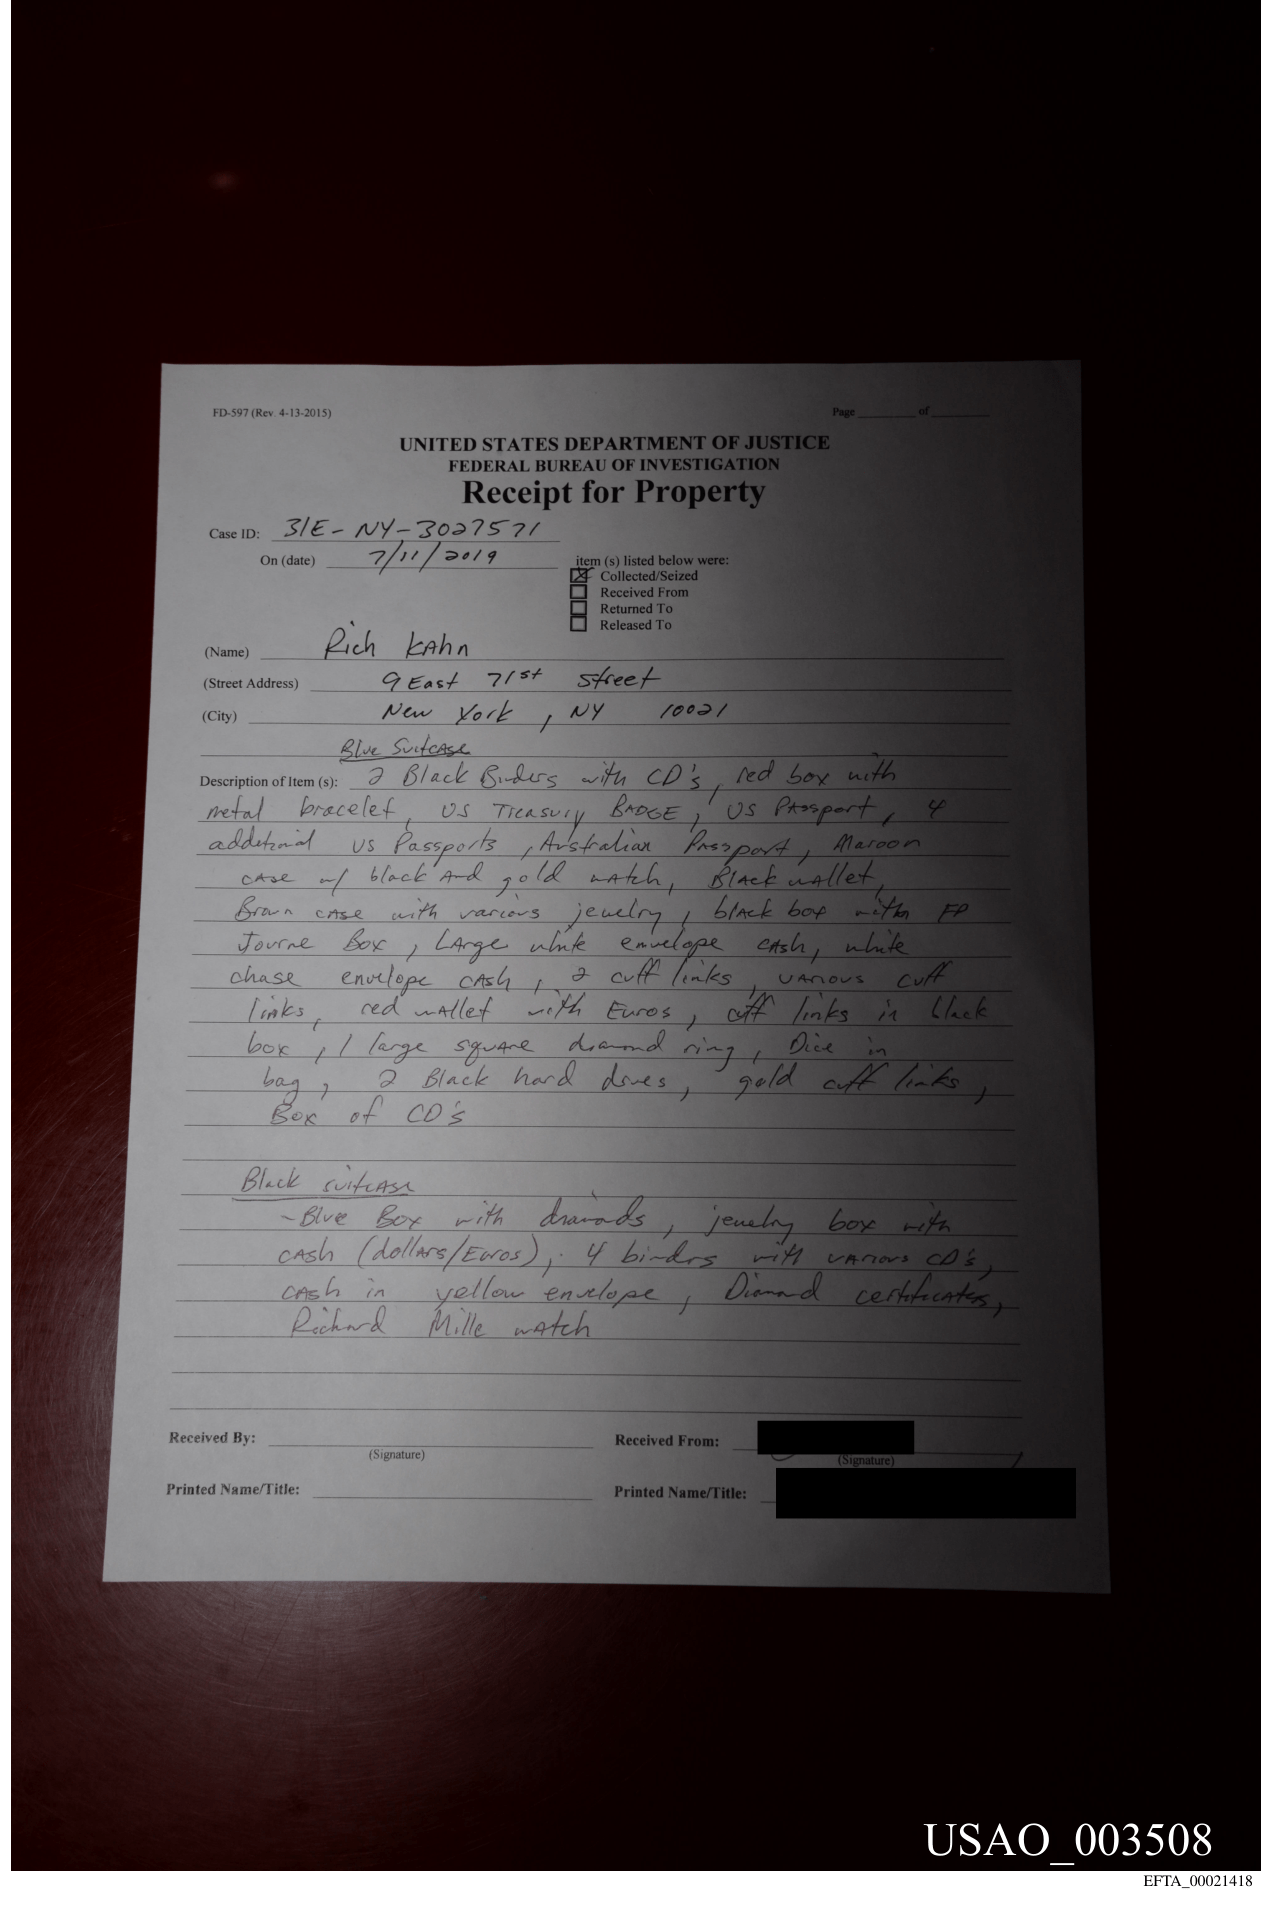 FD-597 (Rev. 4-13-2015) Page ____ of ____
UNITED STATES DEPARTMENT OF JUSTICE
FEDERAL BUREAU OF INVESTIGATION
Receipt for Property
Case ID: 31E-NY-3027571
On (date) 7/11/2019 item (s) listed below were:
Collected/Seized
Received From
Returned To
Released To
(Name) Rich Kahn
(Street Address) 9 East 71st Street
(City) New York, NY 10021
Blue Suitcase
Description of Item (s): 2 Black Binders with CD's, red box with
metal bracelet, US Treasury BADGE, US Passport, 4
additional US Passports, Australian Passport, Maroon
case w/ black and gold watch, Black wallet,
Brown case with various jewelry, black box with FP
Journe Box, Large white envelope cash, white
chase envelope cash, 2 cuff links, various cuff
links, red wallet with Euros, cuff links in black
box, 1 large square diamond ring, Dice in
bag, 2 Black hard drives, gold cuff links,
Box of CD's
Black suitcase
-Blue Box with diamonds, jewelry box with
cash (dollars/Euros), 4 binders with various CD's,
cash in yellow envelope, Diamond certificates,
Richard Mille watch
Received By: Received From:
(Signature) (Signature)
Printed Name/Title: Printed Name/Title:
USAO_003508
EFTA_00021418